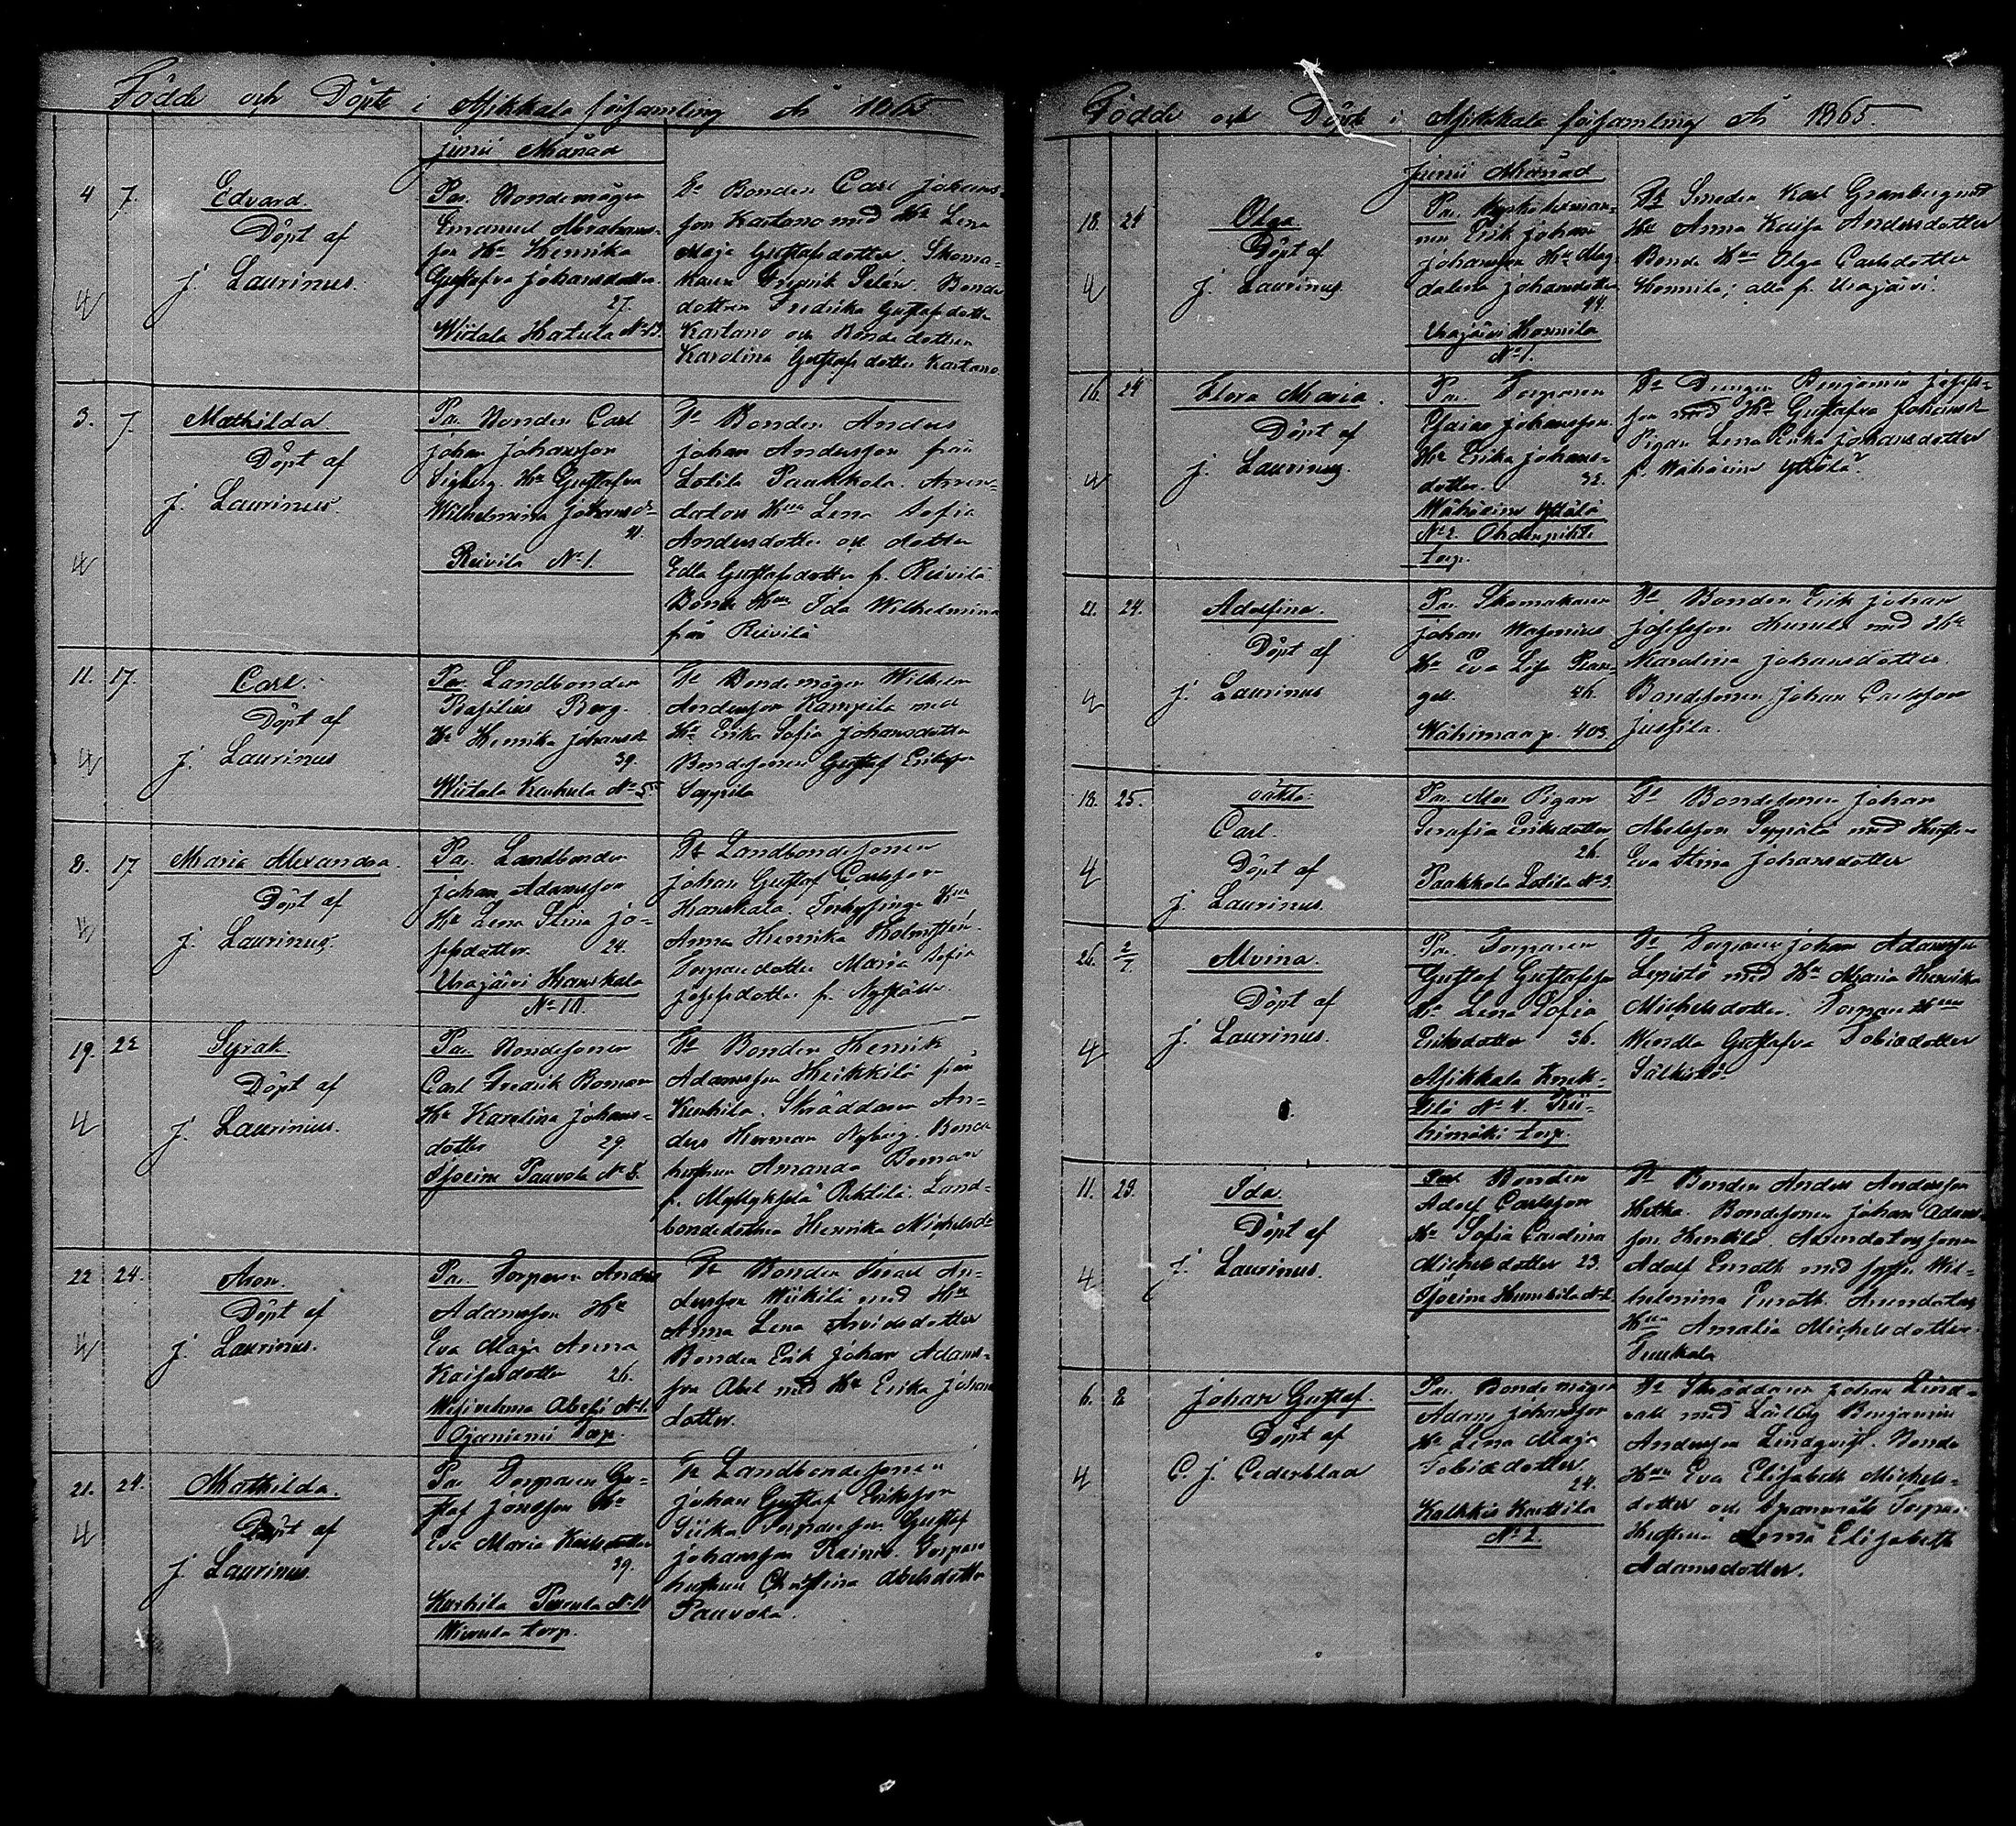 Födde och Döpte i Asikkala församling År 1865.
junii Månad
4 7. Edvard.
Döpt af
J. Laurinus.
4
Par. Bondemågen
Emanuel Abrahams-
son Hu Henrika
Gustafva Johansdotter.
27.
Wiitala Hatula No 13.
Fr Bonden Carl Johans-
son Kartano med Hu Lena
Maja Gustafsdotter. Skoma-
karen Fredrik Selén. Bonde
dottren Fredrika Gustafsdotter
Kartano och Bonde dottren
Karolina Gustafsdotter Kartano
3. 7. Mathilda
Döpt af
J. Laurinus.
4
Par. Bonden Carl
Johan Johansson
Sigberg. Hu Gustafva
Wilhelmina Johansdr
41.
Reivilä No 1.
Fr Bonden Anders
Johan Andersson från
Lotila Paakkola. Arren-
dators Hun Lena Sofia
Andersdotter och dotter
Edla Gustafsdotter fr. Reivilä
Bonde Hun Ida Wilhelmina
från Reivilä
11. 17. Carl.
Döpt af
J. Laurinus
4
Par Landbonden
Basilius Berg.
Hu Henrika Johansdr
39.
Wiitala Keuhula No 5.
Fr Bondemågen Wilhelm
Andersson Kampila med
Hu Erika Sofia Johansdotter
Bondesonen Gustaf Eriksson
Seppilä
8. 17 Maria Alexandra.
Döpt af
J. Laurinus.
4
Par. Landbonden
Johan Adamsson
Hu Lena Stina Jo-
sefsdotter. 24.
Urajärvi Hanskala
No 10.
Fr Landbondesonen
Johan Gustaf Carlsson
Hanskala. Hun
Anna Henrika Holmsten.
Torparedotter Maria Sofia
Josefsdotter fr.
19. 22 Syrak.
Döpt af
J. Laurinus.
4
Par. Bondesonen
Carl Fredrik Boman
Hu Karolina Johans-
dotter 29
Isoeine Paavola No 8.
Fr Bonden Henrik
Adamsson Heikkilä från
Kurhila. Skräddaren An-
ders Herman Nyberg. Bonde
hustrun Amanda Boman
fr. Myllykselä Ohtilä. Land-
bondedottren Henrika Michelsdr
22 24. Aron.
Döpt af
J. Laurinus.
4
Par. Torparen Anders
Adamsson Hu
Eva Maja Anna
Kaisasdotter 26.
Wesivehma Abeli No 1.
Ojaniemi Torp.
Fr Bonden Israel An-
dersson Wiikilä med Hu
Anna Lena Arvidsdotter
Bonden Erik Johan Adams-
son Abel med Hu Erika Johans
dotter.
21. 24. Mathilda.
Döpt af
J. Laurinus.
4
Par Torparen Gu-
staf Jonsson Hu
Eva Maria Karlsdotter
39.
Kurhila Pursula No 11
torp.
Fr Landbondesonen
Johan Gustaf Eriksson
Siika Torpareson Gustaf
Johansson Rainio. Torpare
hustrun Christina Abelsdotter
Paavola.
Födde och Döpte i Asikkala församling År 1865.
Junii Månad
18. 24 Olga
Döpt af
J. Laurinus
4
Par.
Erik Johan
Johansson Hu Mag
dalena Johansdotter
44.
Urajärvi Honnila
No 1.
Fr Smeden Karl Granberg med
Hu Anna Kaisa Andersdotter
Bonde Hun Olga Carlsdotter
Honnila; alla fr. Urajärvi.
16. 24 Flora Maria.
Döpt af
J. Laurinus.
4
Par. Torparen
Esaias Johansson.
Hu Erika Johans-
dotter. 32.
Wähäeine Yttölä
No 2.
torp.
Fr Drengen Benjamin Josefs-
son med Hu Gustafva Johansdr
Pigan Lena Erika Johansdotter
fr. Wähäeine Yttölä.
21. 24. Adolfina.
Döpt af
J. Laurinus
4
Par. Skomakaren
Johan Wasenius
Hu Eva Lisa
46.
Wähimaa p. 403.
Fr Bonden Erik Johan
Josefsson med Hu
Karolina Johansdotter.
Bondesonen Johan Carlsson
Jussila.
13. 25. oäkta
Carl.
Döpt af
J. Laurinus.
4
Par. Mor Pigan
Serafia Eriksdotter
26.
Paakkola Lotila No 3.
Fr Bondesonen Johan
Abelsson Seppälä med Hustru
Eva Stina Johansdotter
26. 2/7. Alvina.
Döpt af
J. Laurinus.
4
Par. Torparen
Gustaf Gustafsson
Hu Lena Sofia
Eriksdotter 36.
Asikkala Knuk-
No 4. Rii-
himäki torp.
Fr Torparen Johan Adamsson
Lepistö med Hu Maria Henrika
Michelsdotter. Torpare Hun
Wendla Gustafva Tobiædotter
11. 29. Ida.
Döpt af
J. Laurinus.
4
Par Bonden
Adolf Carlsson
Hu Sofia Carolina
Michelsdotter 23.
Isoeine No 2
Fr Bonden Anders Andersson
Hutka. Bondesonen Johan Adams-
son Henkilä. Arrendatorssonen
Adolf Enroth med syster Wil-
helmina Enroth. Arrendators
Hun Amalia Michelsdotter.
6. 8 Johan Gustaf.
Döpt af
C. J. Cederblad
4
Par. Bondemågen
Adam Johansson
Hu Lena Maja
Tobiædotter
24.
Kalkkis Kaittila
No 2.
Fr Skräddaren Johan Lind-
med Benjamin
Andersson Lindqvist. Bonde
Hun Eva Elisabeth Michels-
dotter och Torpare
Hustrun Elisabeth
Adamsdotter.